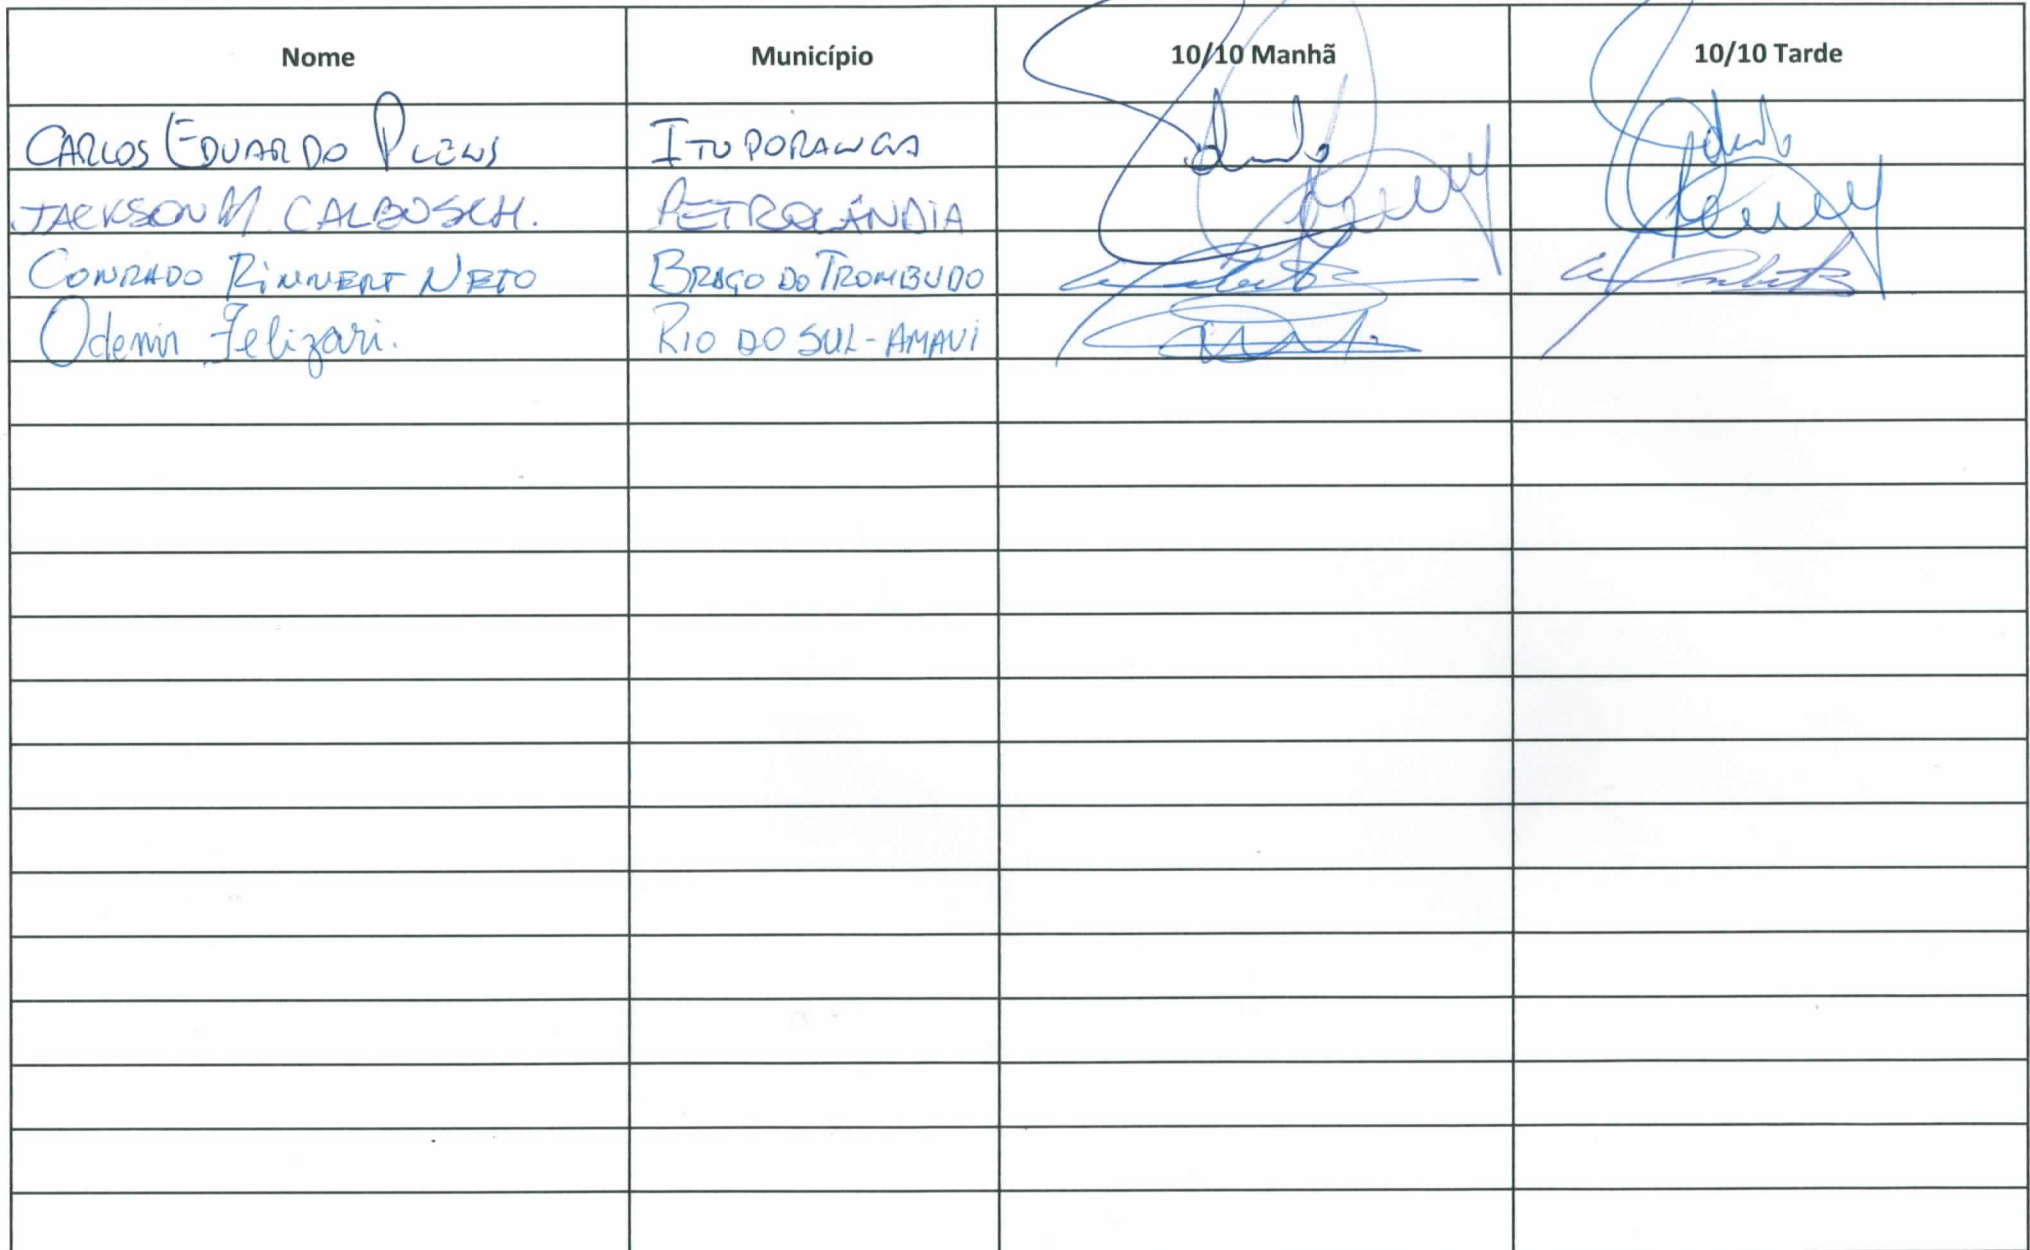 Nome Município 10/10 Manhã 10/10 Tarde
CARLOS EDUARDO PLEWS ITUPORANGA
JACKSON M CALBUSCH. PETROLÂNDIA
CONRADO RINNERT NETO BRAÇO DO TROMBUDO
Odemir Felizari. RIO DO SUL-AMAVI